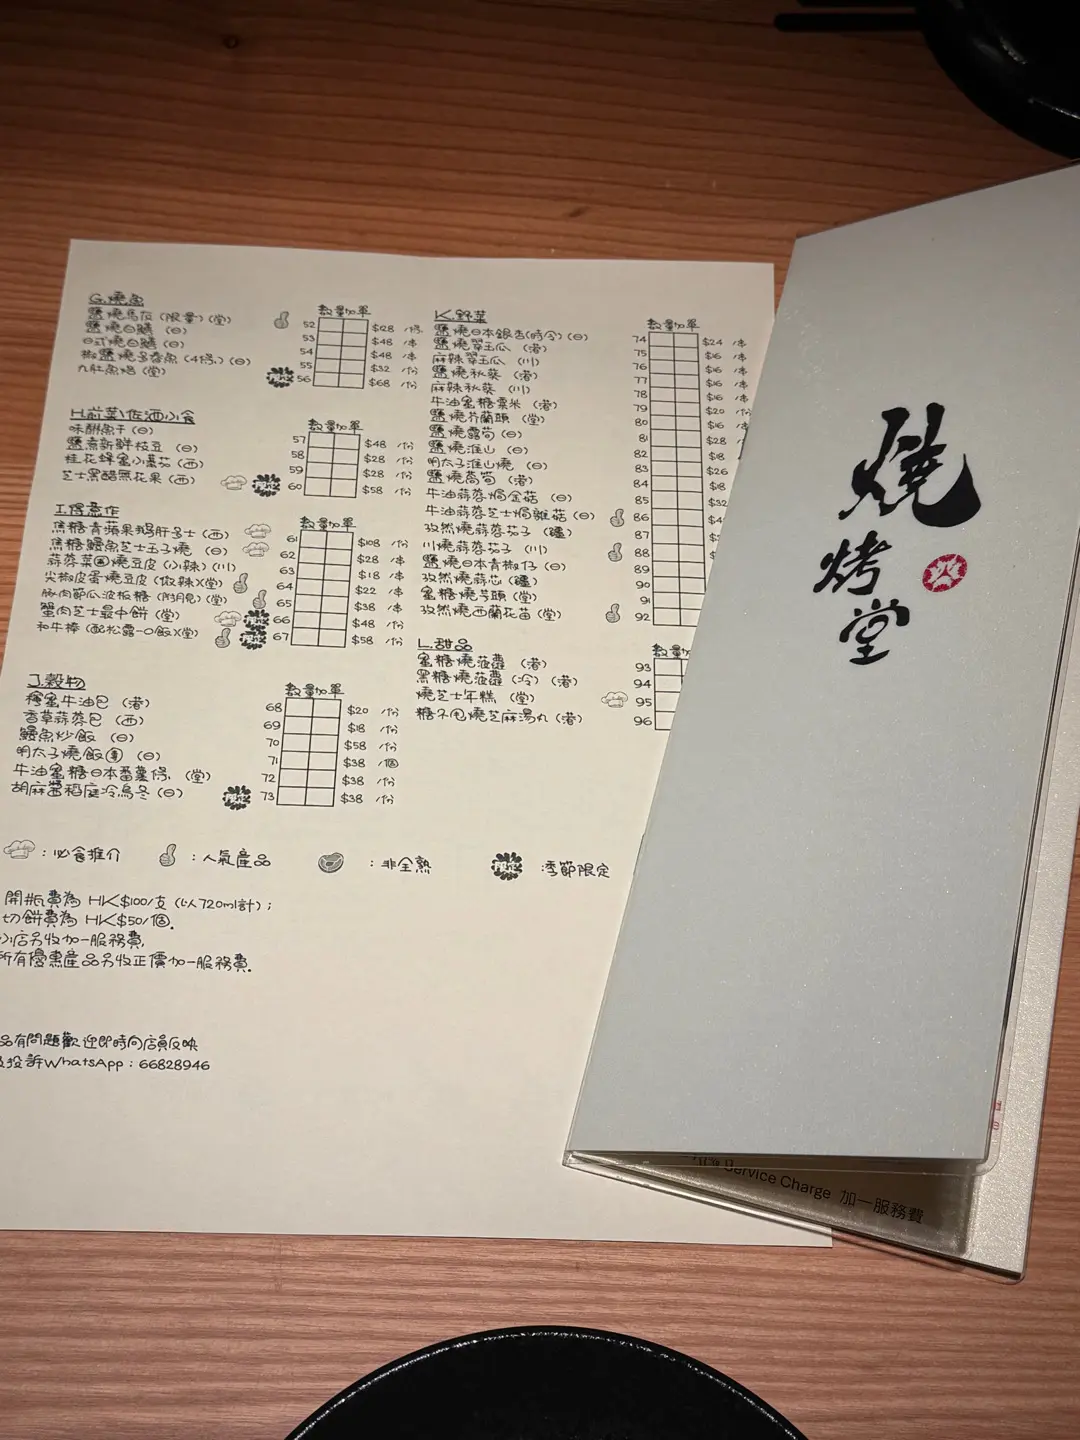 G.燒魚
數量加單
鹽燒馬友(限量)(堂) 52 $128 /條
鹽燒白鱔 (日) 53 $48 /串
日式燒白鱔 (日) 54 $48 /串
椒鹽燒多春魚(4條)(日) 55 $32 /份
九肚魚焙(堂) 56 $68 /份
H.前菜\佐酒小食
數量加單
味醂魚干(日) 57 $48 /份
鹽煮新鮮枝豆 (日) 58 $28 /份
桂花蜂蜜小蕃茄 (西) 59 $28 /份
芝士黑醋無花果 (西) 60 $58 /份
I.得意作
數量加單
焦糖青蘋果鵝肝多士(西) 61 $108 /份
焦糖鰻魚芝士玉子燒 (日) 62 $28 /串
蒜蓉菜甫燒豆皮(小辣)(川) 63 $18 /串
尖椒皮蛋燒豆皮(做辣)(堂) 64 $22 /串
豚肉節瓜波板糖(附月見)(堂) 65 $38 /串
蟹肉芝士最中餅(堂) 66 $48 /份
和牛棒(配松露一口飯)(堂) 67 $58 /份
J.穀物
數量加單
糖蜜牛油包 (港) 68 $20 /份
香草蒜蓉包 (西) 69 $18 /份
鰻魚炒飯 (日) 70 $58 /份
明太子燒飯團 (日) 71 $38 /個
牛油蜜糖日本番薯條 (堂) 72 $38 /份
胡麻醬稻庭冷烏冬(日) 73 $38 /份
K.野菜
數量加單
鹽燒日本銀杏(時令)(日) 74 $24 /串
鹽燒翠玉瓜 (港) 75 $16 /串
麻辣翠玉瓜 (川) 76 $16 /串
鹽燒秋葵 (港) 77 $16 /串
麻辣秋葵 (川) 78 $16 /串
牛油蜜糖粟米 (港) 79 $20 /份
鹽燒芥蘭頭 (堂) 80 $16 /串
鹽燒露荀(日) 81 $28
鹽燒淮山 (日) 82 $8
明太子淮山燒 (日) 83 $26
鹽燒萵筍 (日) 84 $18
牛油蒜蓉焗金菇 (日) 85 $32
牛油蒜蓉芝士焗雜菇(日) 86
孜然燒蒜蓉茄子 (疆) 87
川燒蒜蓉茄子 (川) 88
鹽燒日本青椒仔(日) 89
孜然燒蒜芯 (疆) 90
蜜糖燒芋頭 (堂) 91
孜然燒西蘭花苗 (堂) 92
L.甜品
蜜糖燒菠蘿 (港) 93
黑糖燒菠蘿 (冷)(港) 94
燒芝士年糕 (堂) 95
糖不甩燒芝麻湯丸(港) 96
：必食推介
：人氣產品
：非全熟
：季節限定
開瓶費為 HK$100/支(以720ml計)；
切餅費為 HK$50/個.
小店另收加一服務費.
所有優惠產品另收正價加一服務費.
品有問題歡迎即時向店員反映
投訴WhatsApp：66828946
燒
烤
堂
Service Charge 加一服務費